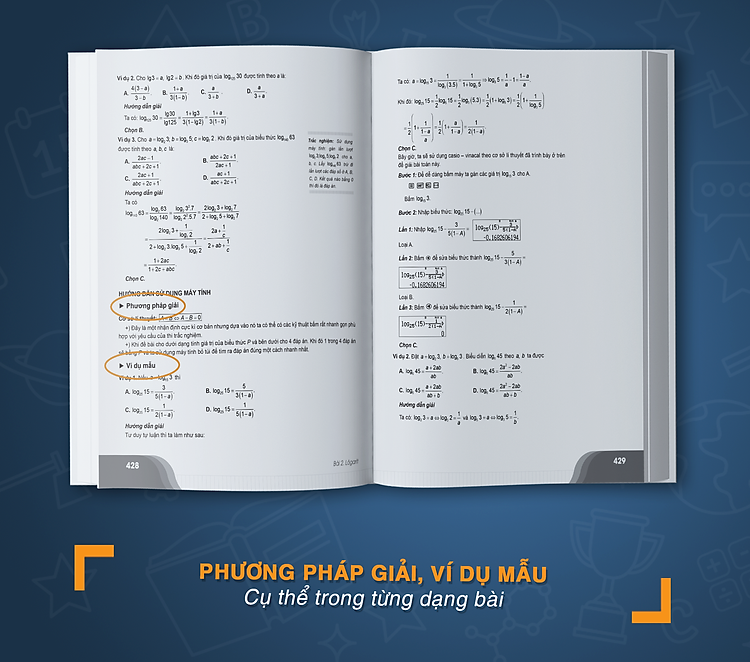 Ví dụ 2. Cho lg3 = a, lg2 = b. Khi đó giá trị của log₁₂₅ 30 được tính theo a là:
A. 4(3 - a)/(3 - b). B. (1 + a)/(3(1 - b)). C. a/(3 + b). D. a/(3 + a).
Hướng dẫn giải
Ta có: log₁₂₅ 30 = lg30/lg125 = (1 + lg3)/(3(1 - lg2)) = (1 + a)/(3(1 - b)).
Chọn B.
Ví dụ 3. Cho a = log₂ 3; b = log₃ 5; c = log₇ 2. Khi đó giá trị của biểu thức log₁₄₀ 63
được tính theo a, b, c là:
A. (2ac - 1)/(abc + 2c + 1). B. (abc + 2c + 1)/(2ac + 1).
C. (2ac + 1)/(abc + 2c + 1). D. (ac + 1)/(abc + 2c + 1).
Hướng dẫn giải
Ta có
log₁₄₀ 63 = log₂ 63/log₂ 140 = log₂ 3².7/log₂ 2².5.7 = (2log₂ 3 + log₂ 7)/(2 + log₂ 5 + log₂ 7)
Chọn C.
Trắc nghiệm: Sử dụng
máy tính: gán lần lượt
log₂3; log₃5; log₇2 cho a,
b, c. Lấy log₁₄₀63 trừ đi
lần lượt các đáp số ở A, B,
C, D. Kết quả nào bằng 0
thì đó là đáp án.
HƯỚNG DẪN SỬ DỤNG MÁY TÍNH
▶ Phương pháp giải
Cơ sở lí thuyết: A = B ⇔ A - B = 0
+) Đây là một nhận định cực kì cơ bản nhưng dựa vào nó ta có thể có các kỹ thuật bấm rất nhanh gọn phù
hợp với yêu cầu của thi trắc nghiệm.
+) Khi đề bài cho dưới dạng tính giá trị của biểu thức P và bên dưới cho 4 đáp án. Khi đó 1 trong 4 đáp án
sẽ bằng P và ta sử dụng máy tính bỏ túi để tìm ra đáp án đúng một cách nhanh nhất.
▶ Ví dụ mẫu
Ví dụ 1. Nếu a = log₁₅ 3 thì
A. log₂₅ 15 = 3/(5(1 - a)). B. log₂₅ 15 = 5/(3(1 - a)).
C. log₂₅ 15 = 1/(2(1 - a)). D. log₂₅ 15 = 1/(5(1 - a)).
Hướng dẫn giải
Tư duy tự luận thì ta làm như sau:
428
Bài 2. Lôgarit
Ta có: a = log₁₅ 3 = 1/log₃(3.5) = 1/(1 + log₃ 5) ⇒ log₃ 5 = 1/a - 1 = (1 - a)/a.
Khi đó: log₂₅ 15 = 1/2 log₅ 15 = 1/2 log₅ (5.3) = 1/2 (1 + log₅ 3) = 1/2 (1 + 1/log₃ 5)
= 1/2 (1 + 1/((1 - a)/a)) = 1/2 (1 + a/(1 - a)) = 1/(2(1 - a)).
Chọn C.
Bây giờ, ta sẽ sử dụng casio – vinacal theo cơ sở lí thuyết đã trình bày ở trên
để giải bài toán này.
Bước 1: Để dễ dàng bấm máy ta gán các giá trị log₁₅ 3 cho A.
Bấm log₁₅ 3.
Bước 2: Nhập biểu thức: log₂₅ 15 - (...)
Lần 1: Nhập log₂₅ 15 - 3/(5(1 - A)) log₂₅(15)-3/(5(1-A)) -0.1682606194
Loại A.
Lần 2: Bấm ◀ để sửa biểu thức thành log₂₅ 15 - 5/(3(1 - A)) =
-0.1682606194
Loại B.
Lần 3: Bấm ◀ để sửa biểu thức thành log₂₅ 15 - 1/(2(1 - A)) =
log₂₅(15)-1/(2(1-A)) 0
Chọn C.
Ví dụ 2. Đặt a = log₂ 3, b = log₅ 3. Biểu diễn log₆ 45 theo a, b ta được
A. log₆ 45 = (a + 2ab)/ab. B. log₆ 45 = (2a² - 2ab)/ab.
C. log₆ 45 = (a + 2ab)/(ab + b). D. log₆ 45 = (2a² - 2ab)/(ab + b).
Hướng dẫn giải
Ta có: log₂ 3 = a ⇔ log₃ 2 = 1/a và log₅ 3 = b ⇔ log₃ 5 = 1/b.
429
PHƯƠNG PHÁP GIẢI, VÍ DỤ MẪU
Cụ thể trong từng dạng bài